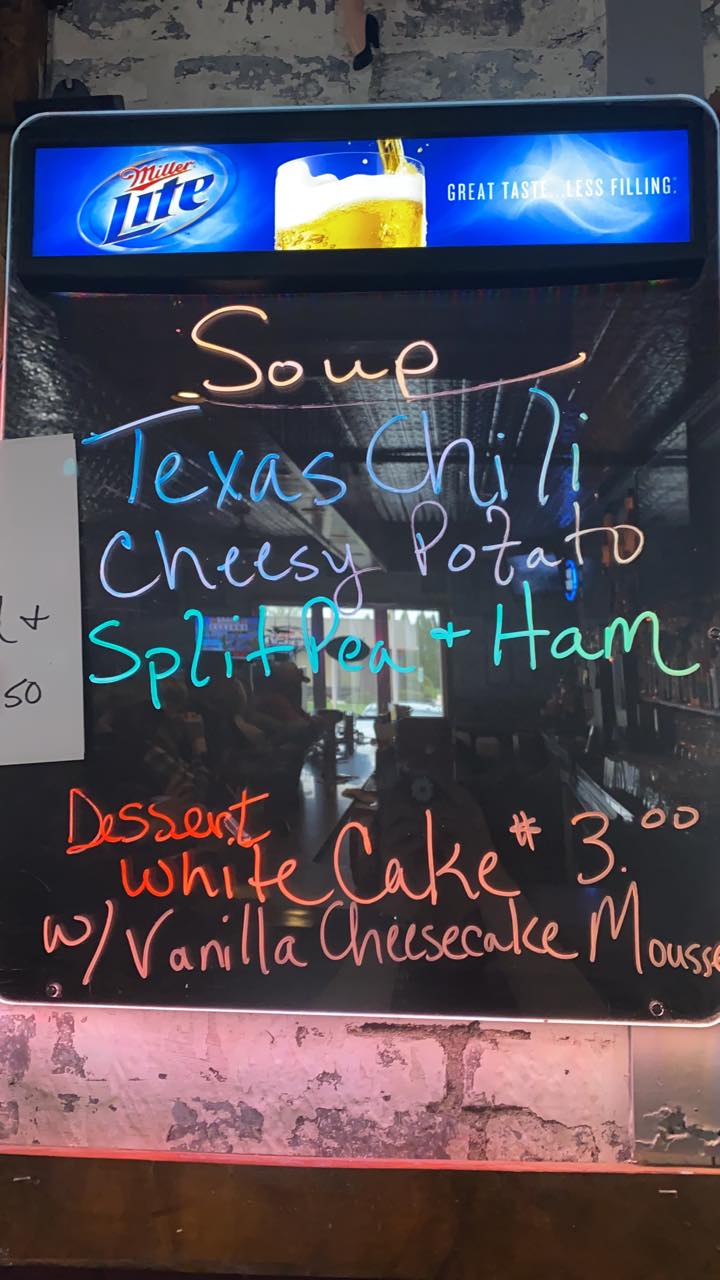 Miller
Lite
GREAT TASTE...LESS FILLING.
Soup
Texas Chili
Cheesy Potato
Split Pea + Ham
Dessert
White Cake # 3.00
w/ Vanilla Cheesecake Mousse
+
50